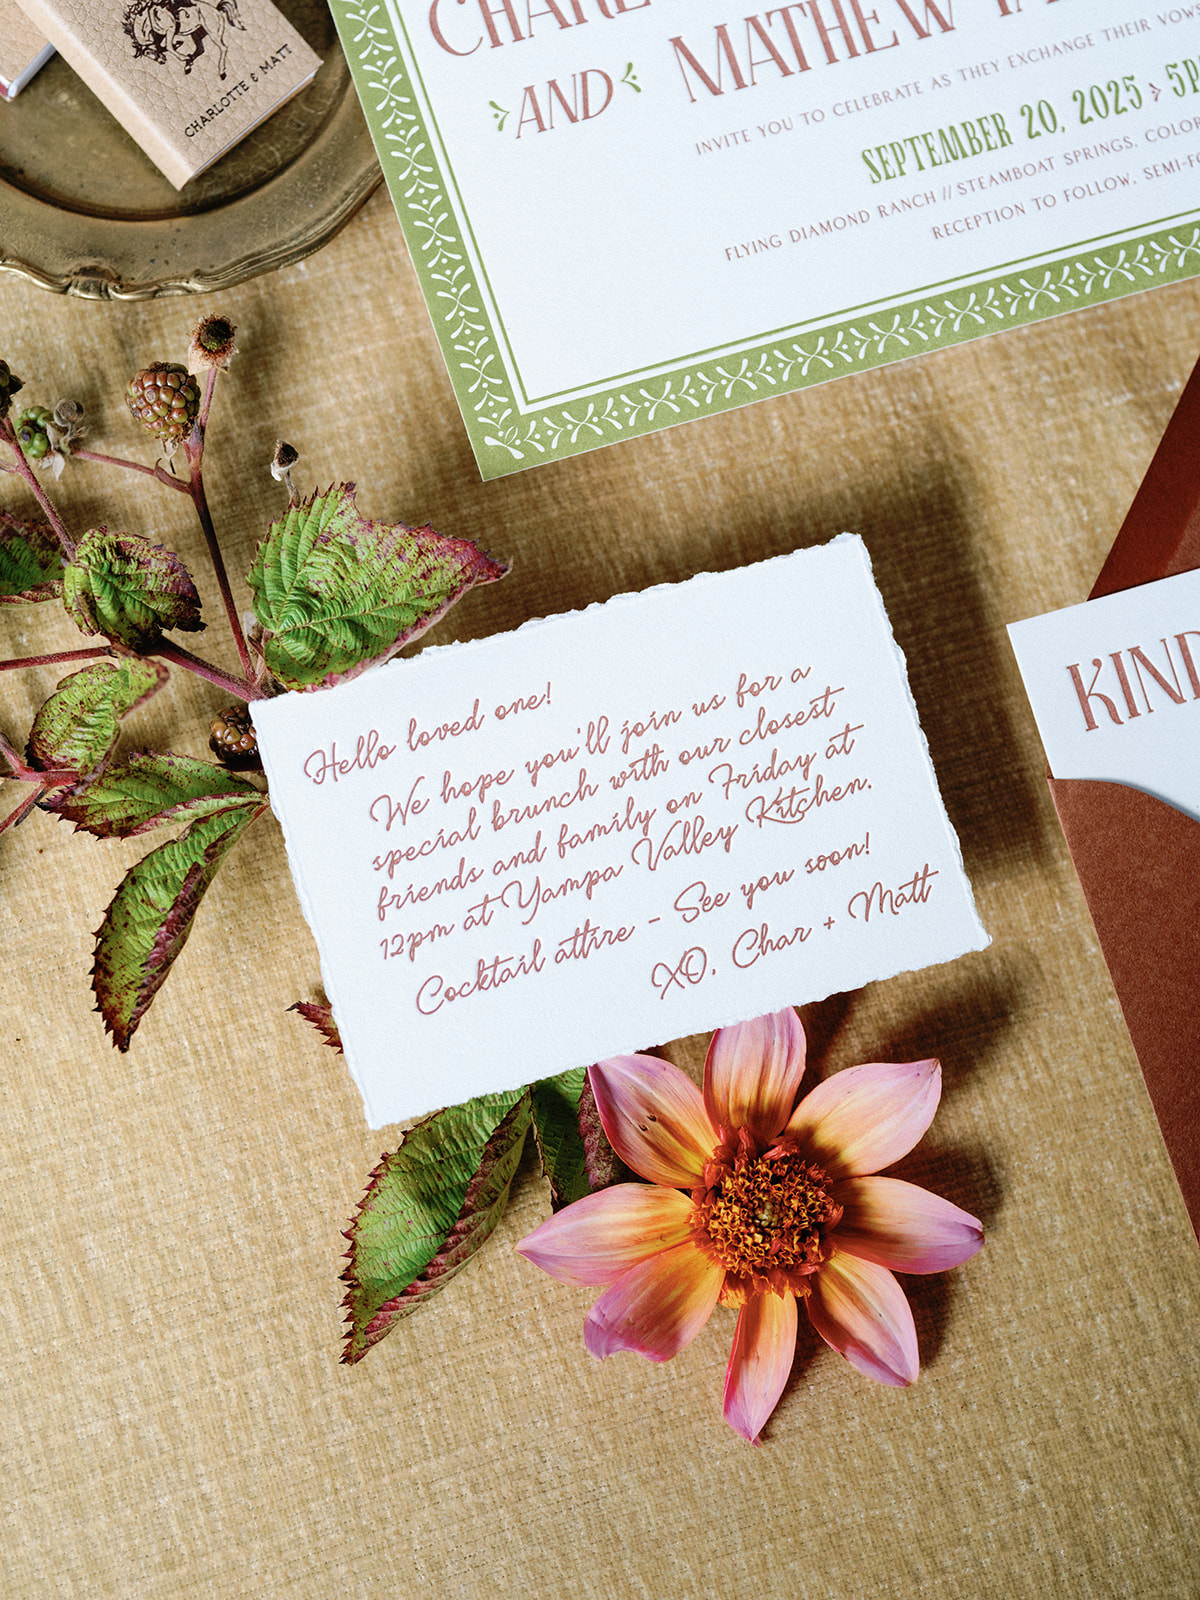 CHARLOTTE & MATT
AND MATHEW
INVITE YOU TO CELEBRATE AS THEY EXCHANGE THEIR VOWS
SEPTEMBER 20, 2025
FLYING DIAMOND RANCH // STEAMBOAT SPRINGS,
RECEPTION TO FOLLOW,
Hello loved one!
We hope you'll join us for a
special brunch with our closest
friends and family on Friday at
12pm at Yampa Valley Kitchen.
Cocktail attire - See you soon!
XO, Char + Matt